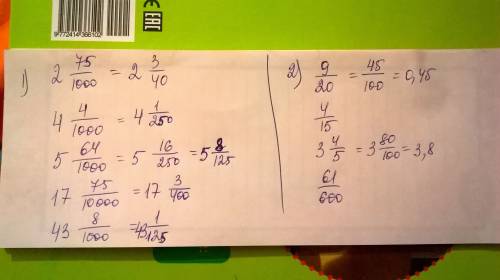 9772414366102
EAC
1) 2 75/1000 = 2 3/40
4 4/1000 = 4 1/250
5 64/1000 = 5 16/250 = 5 8/125
17 75/10000 = 17 3/400
43 8/1000 = 43 1/125
2) 9/20 = 45/100 = 0,45
4/15
3 4/5 = 3 80/100 = 3,8
61/600